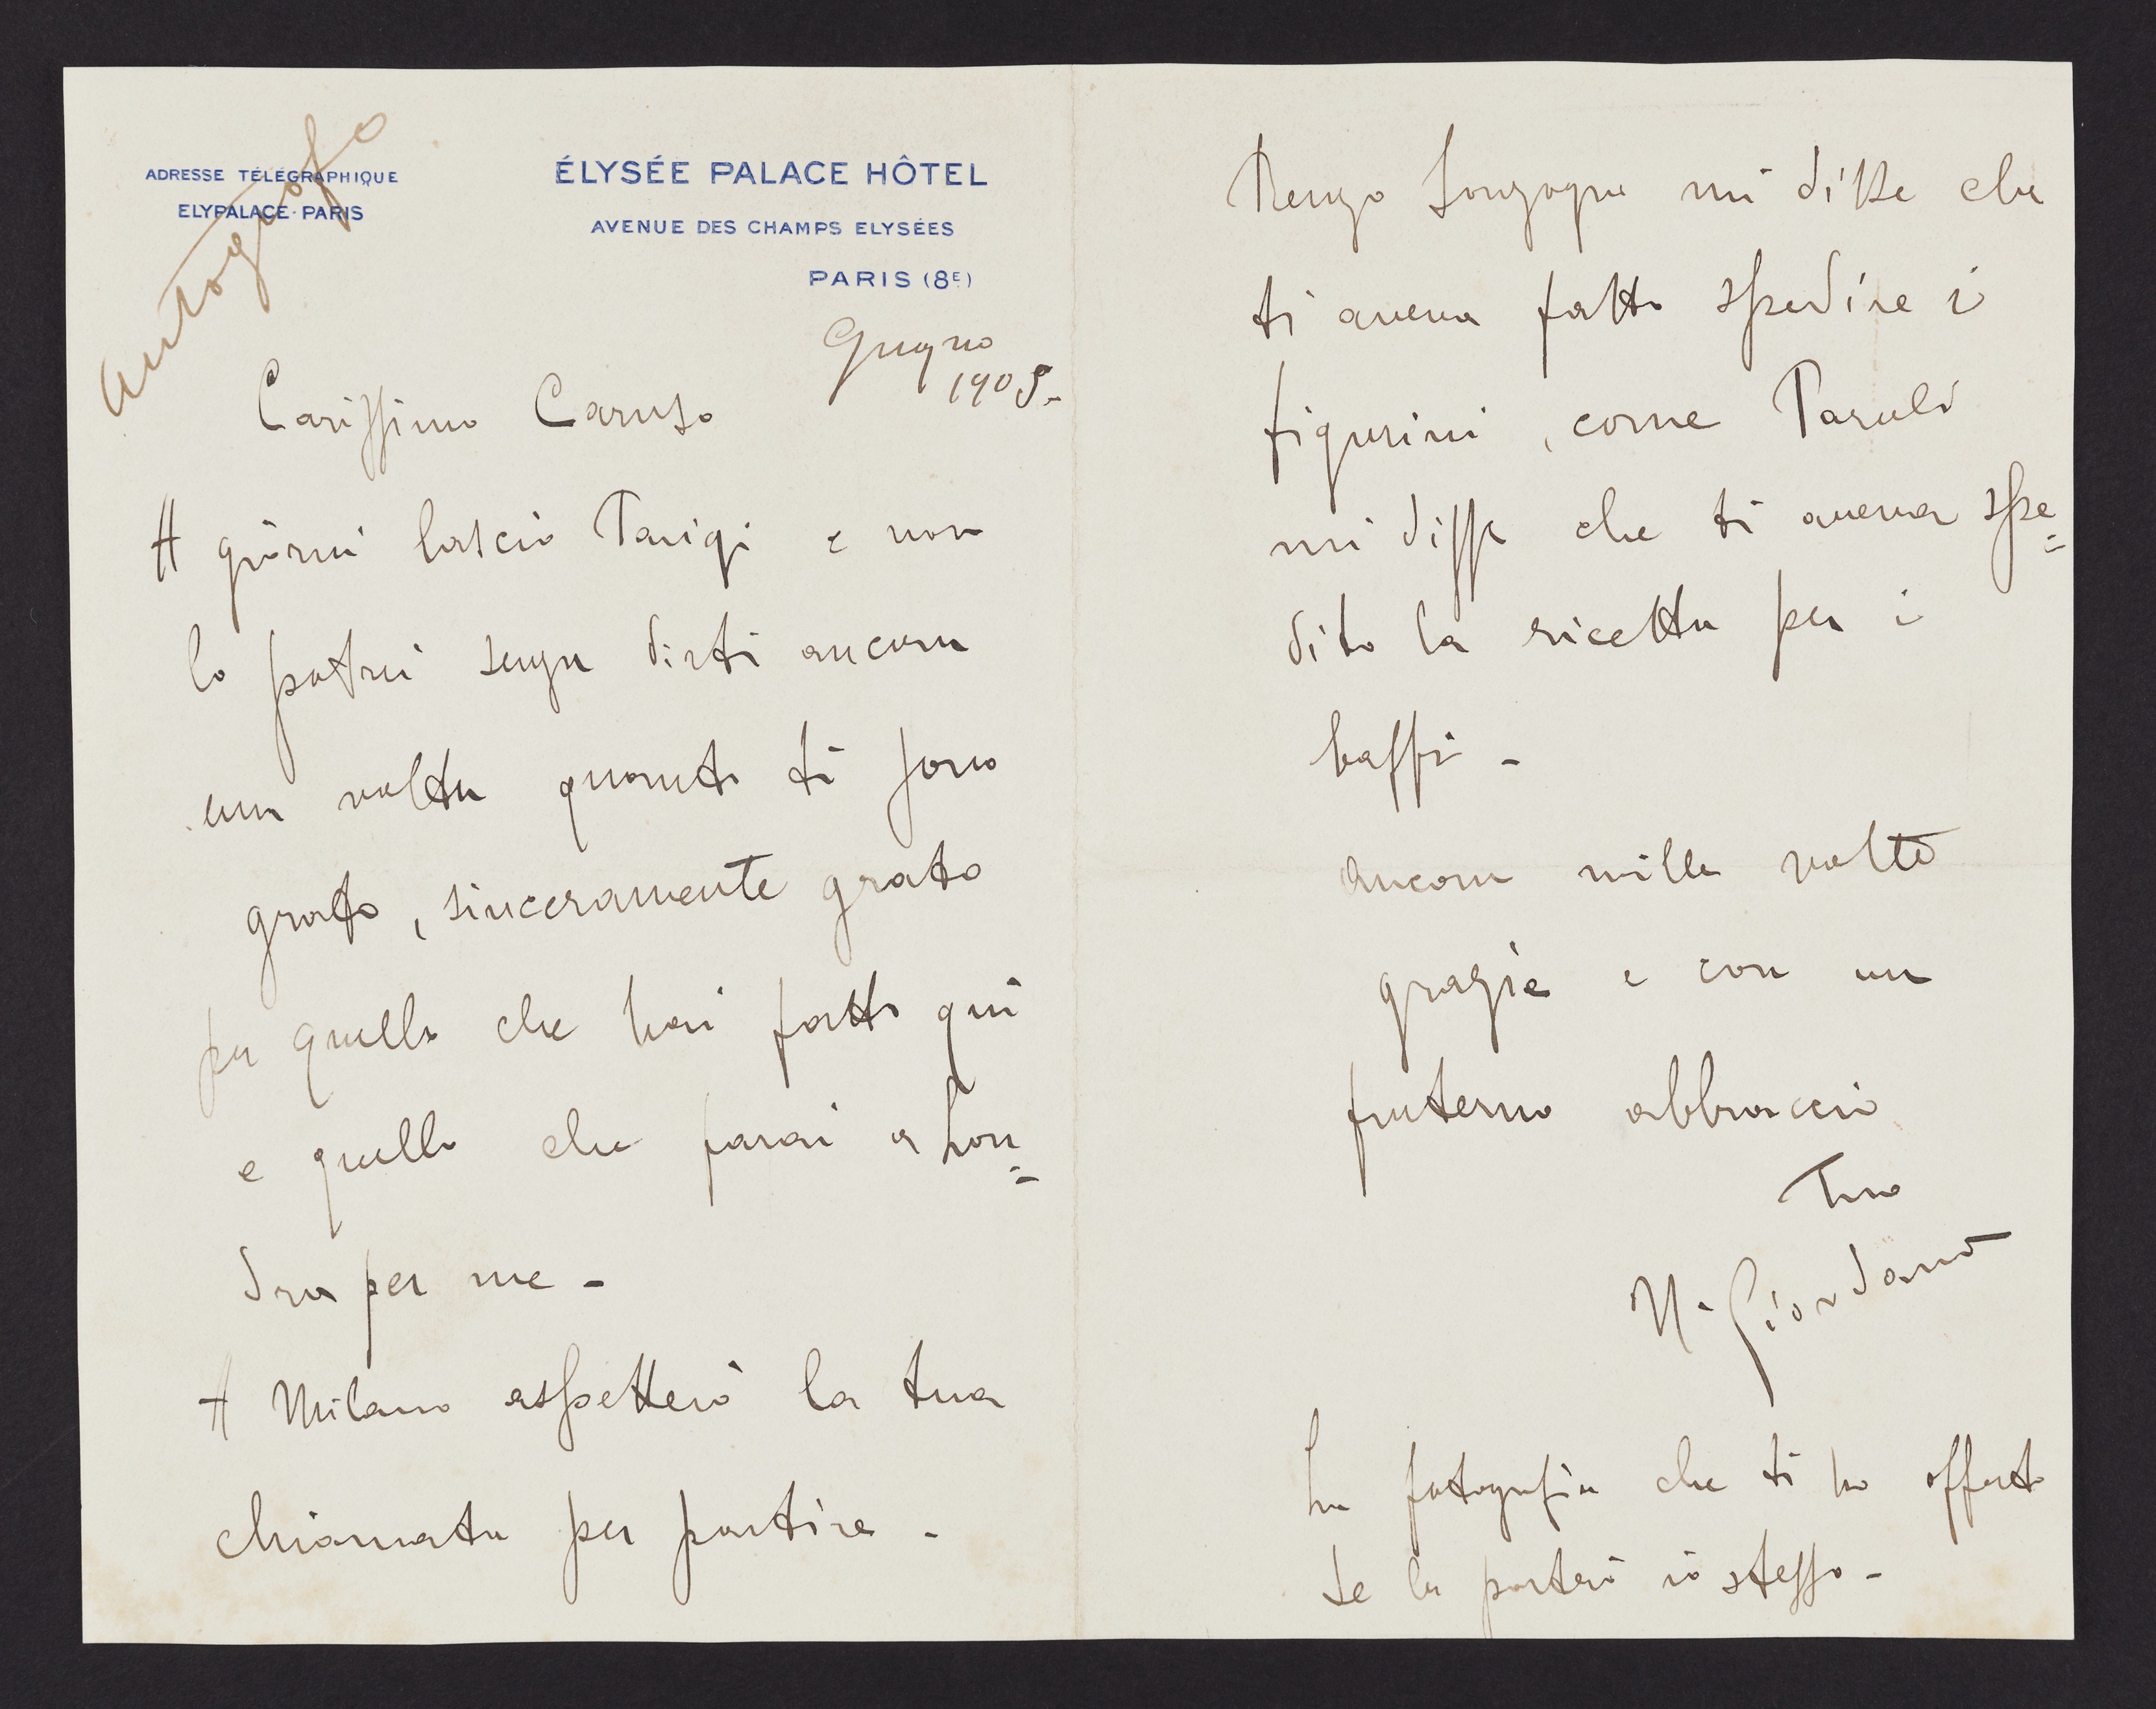 Autografo
ADRESSE TÉLÉGRAPHIQUE
ELYPALACE-PARIS
ÉLYSÉE PALACE HÔTEL
AVENUE DES CHAMPS ELYSÉES
PARIS (8E)
Giugno
1905-
Carissimo Caruso
A giorni lascio Parigi e non
lo potrei senza dirti ancora
una volta quanto ti sono
grato, sinceramente grato
per quello che hai fatto qui
e quello che farai a Lon=
dra per me -
A Milano aspetterò la tua
chiamata per partire -
Renzo Sonzogno mi disse che
ti aveva fatto spedire i
figurini, come
mi disse che ti aveva spe=
dito la ricetta per i
baffi -
Ancora mille volte
grazie e con un
fraterno abbraccio
Tuo
U. Giordano
La fotografia che ti ho offerto
te la porterò io stesso -